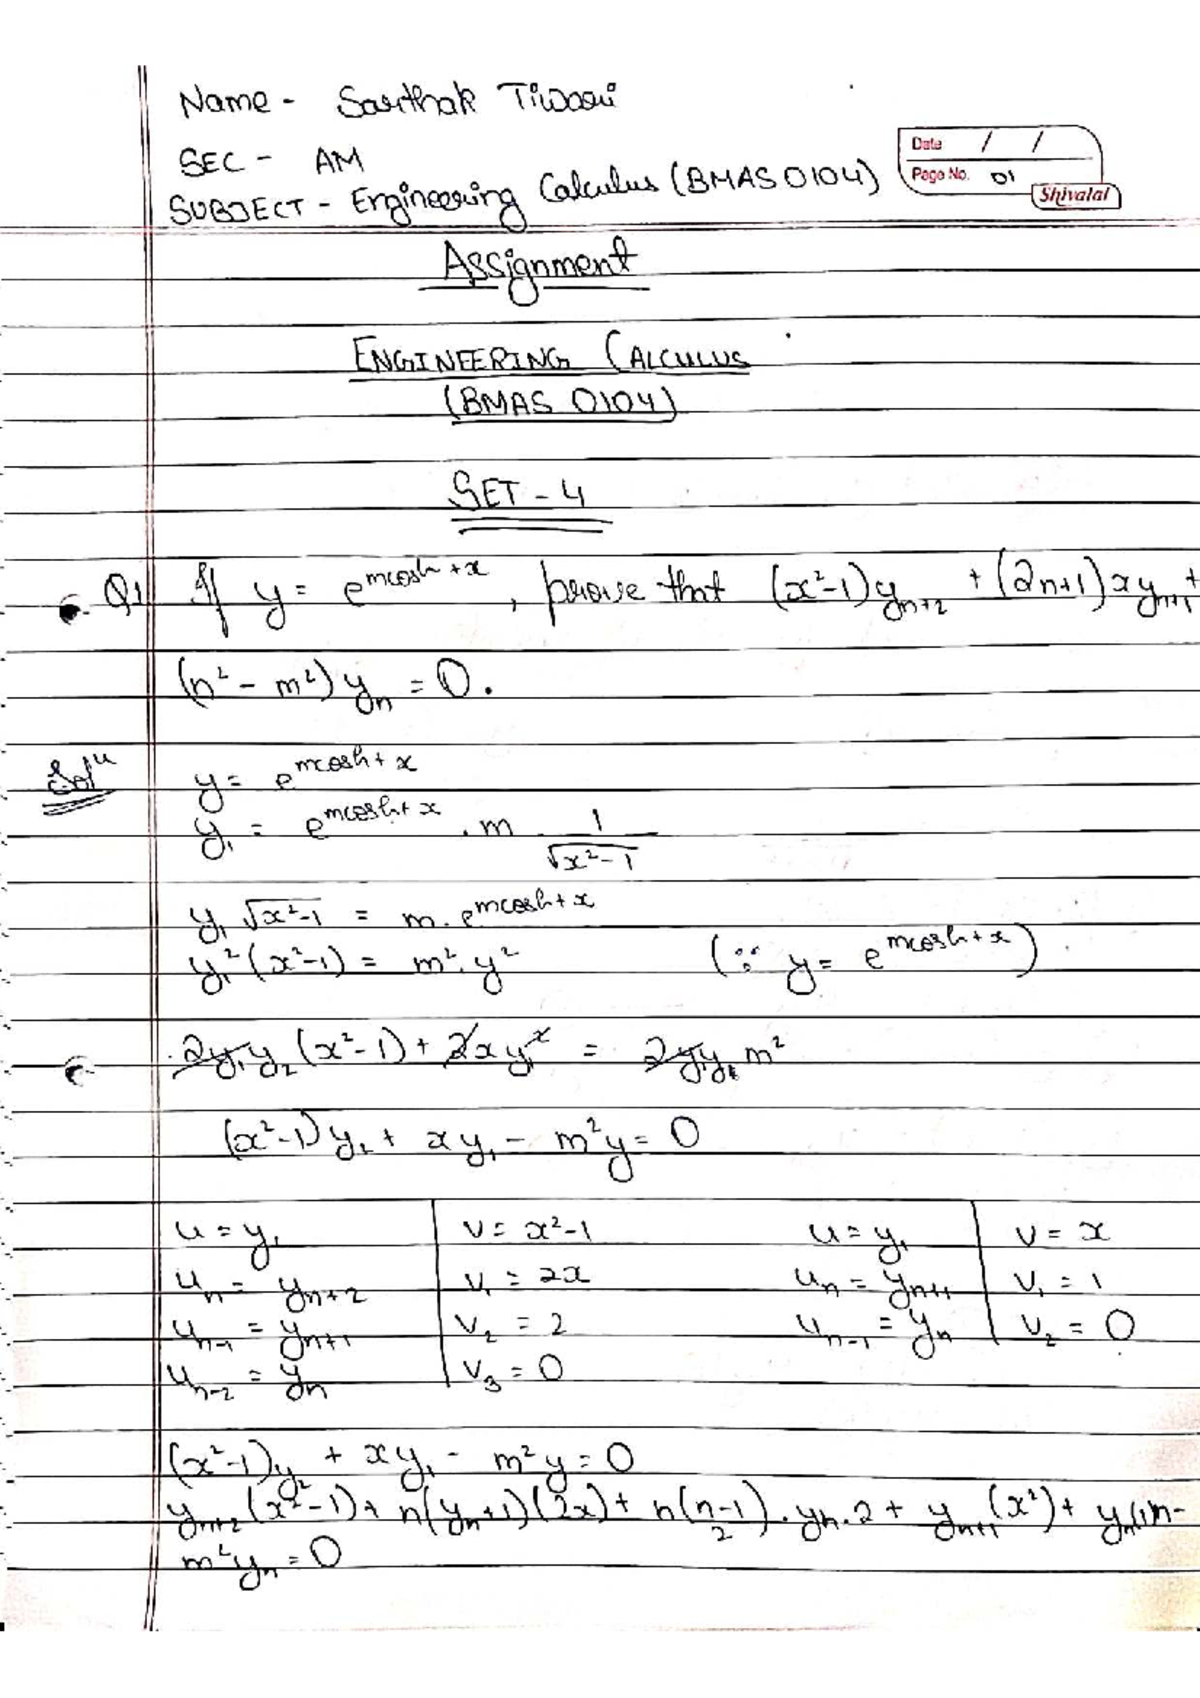 Name - Sarthak Tiwari
SEC - AM
SUBJECT - Engineering Calculus (BMAS 0104)
Date / /
Page No. 01
Shivalal
Assignment
ENGINEERING CALCULUS
(BMAS 0104)
SET - 4
Q1 If y = e^{mcosh+x}, prove that (x²-1)y_{n+2} + (2n+1)xy_{n+1} +
(n² - m²)y_n = 0.
Solⁿ y = e^{mcosh+x}
y₁ = e^{mcosh+x} . m . 1/√(x²-1)
y₁√(x²-1) = m. e^{mcosh+x}
y₁²(x²-1) = m². y² (∵ y = e^{mcosh+x})
2y₁y₂(x²-1) + 2xy₁² = 2yy₁m²
(x²-1)y₂ + xy₁ - m²y = 0
u = y₁ v = x²-1 u = y₁ v = x
u_n = y_{n+2} v₁ = 2x u_n = y_{n+1} v₁ = 1
u_{n-1} = y_{n+1} v₂ = 2 u_{n-1} = y_n v₂ = 0
u_{n-2} = y_n v₃ = 0
(x²-1)y₂ + xy₁ - m²y = 0
y_{n+2}(x²-1) + n(y_{n+1})(2x) + n(n-1)/2 . y_n . 2 + y_{n+1}(x²) + y_n(1)n -
m²y_n = 0